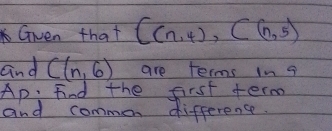 * Given that C(n,4), C(n,5)
and C(n,6) are terms in a
AP. Find the first term
and common difference.